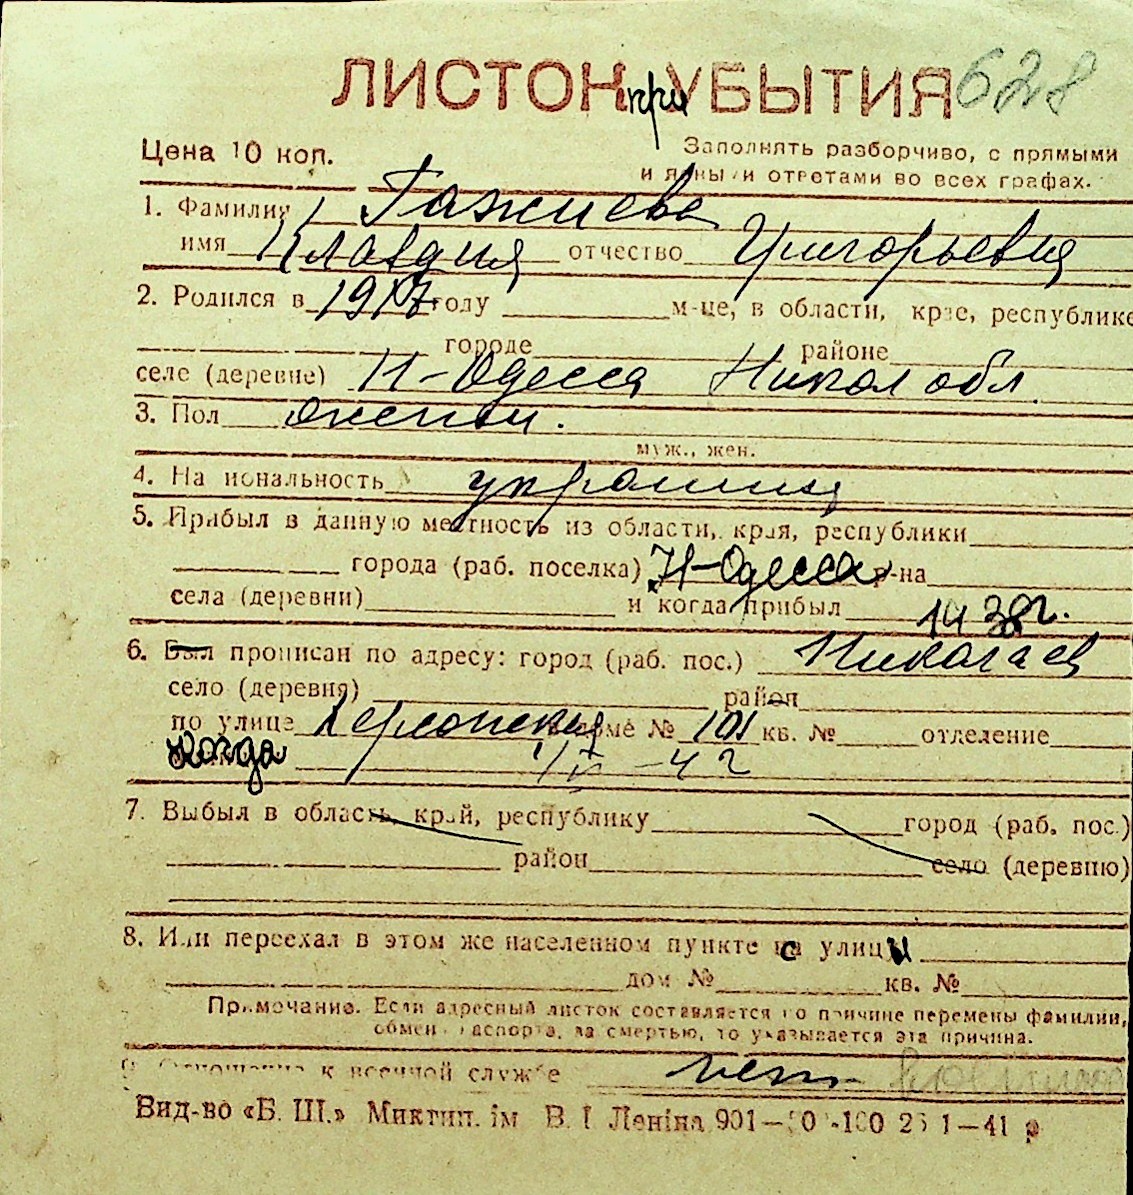 ЛИСТОК при УБЫТИЯ 628
Цена 10 коп.
Заполнять разборчиво, с прямыми
и ясными ответами во всех графах.
1. Фамилия Гажиева
имя Клавдия отчество Григорьевна
2. Родился в 1917 году м-це, в области, крае, республике
городе районе
селе (деревне) Н-Одесса Никол обл.
3. Пол женский.
муж., жен.
4. Национальность украинка
5. Прибыл в данную местность из области, края, республики
города (раб. поселка) Н-Одесса р-на
села (деревни) и когда прибыл 1938г.
6. Был прописан по адресу: город (раб. пос.) Николаев
село (деревня) район
по улице Херсонская доме № 101 кв. № отделение
когда
7. Выбыл в область, край, республику город (раб. пос.)
район село (деревню)
8. Или переехал в этом же населенном пункте с улицы
дом № кв. №
Примечание. Если адресный листок составляется по причине перемены фамилии,
обмена паспорта, за смертью, то указывается эта причина.
9. Отношение к военной службе нет
Вид-во «Б. Ш.» Миктип. ім В. І Леніна 901— 25 1—41 р